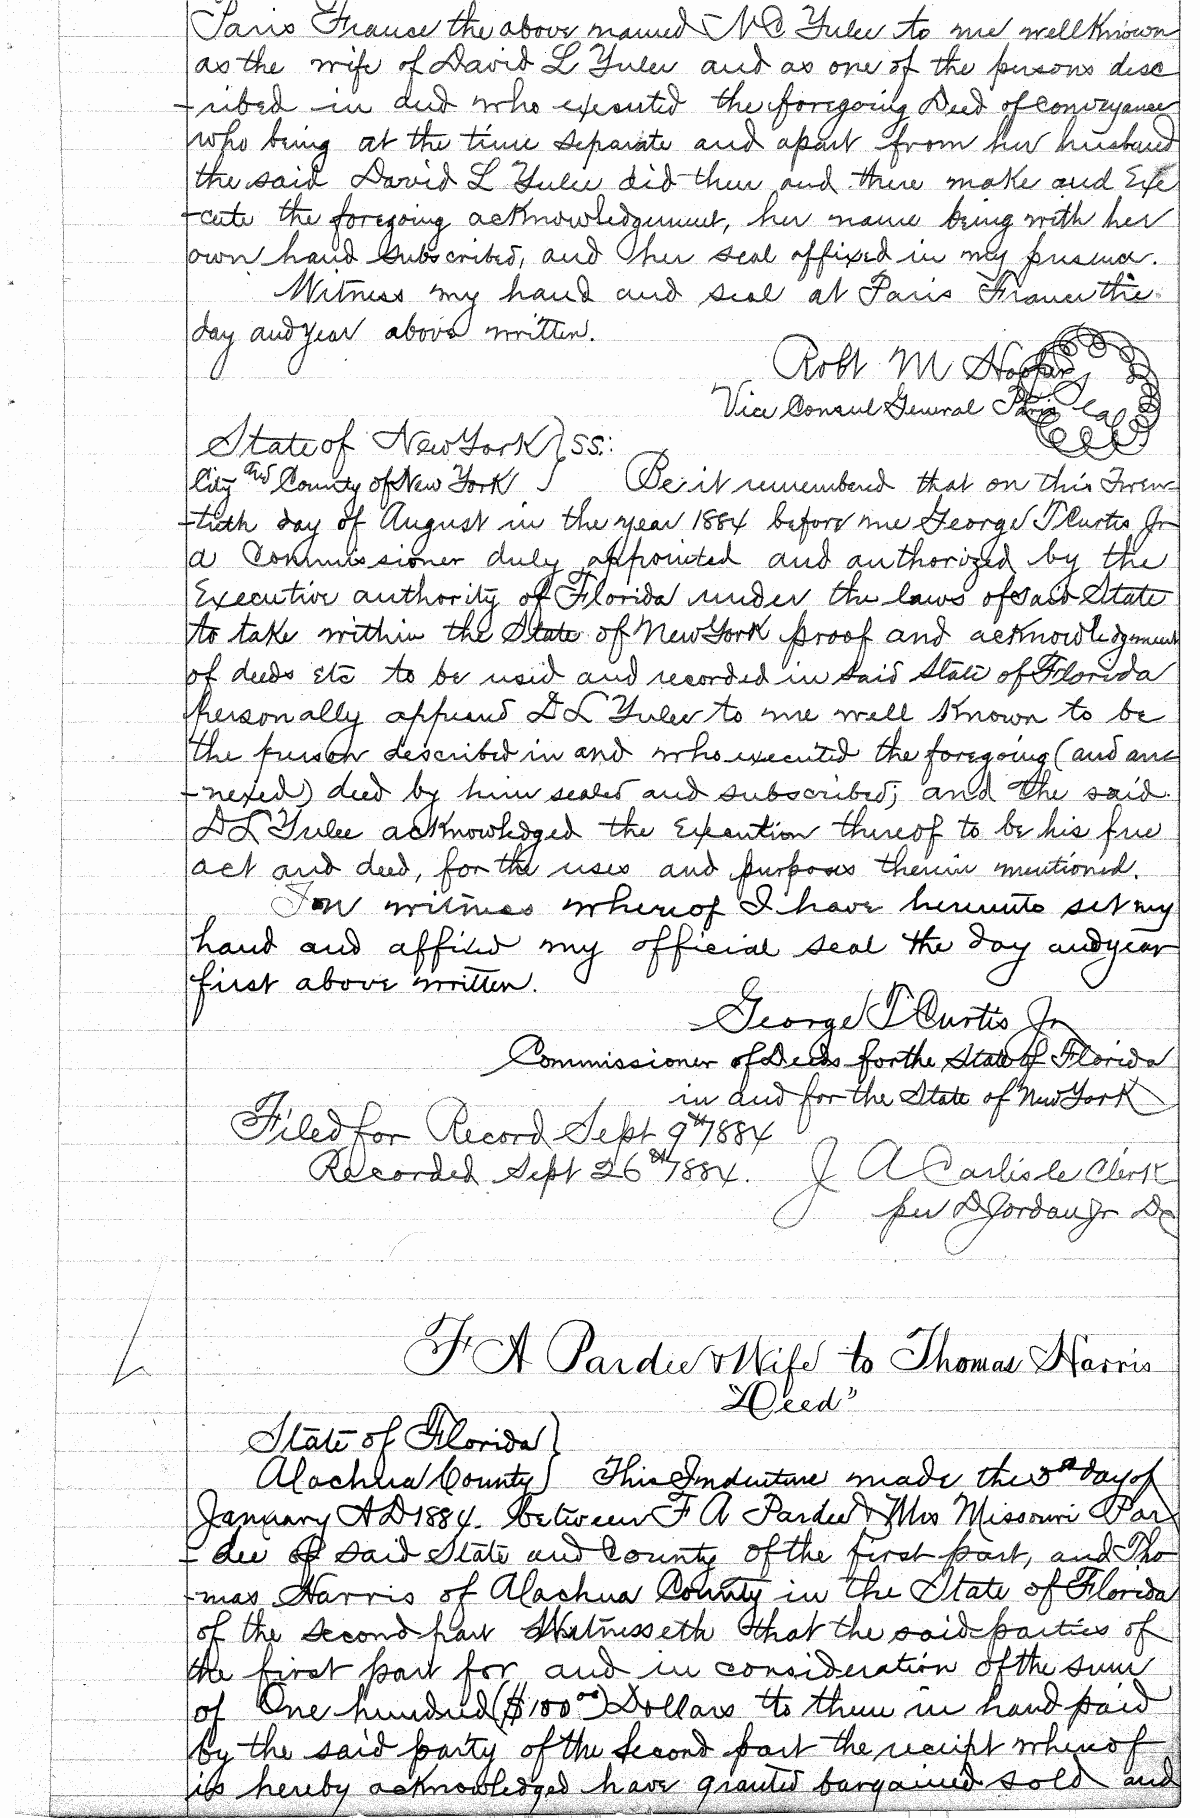 Paris France the above named N C Yulee to me well known
as the wife of David L Yulee and as one of the persons desc
-ribed in and who executed the foregoing Deed of conveyance
who being at the time separate and apart from her husband
the said David L Yulee did then and there make and Exe
-cute the foregoing acknowledgement, her name being with her
own hand subscribed, and her seal affixed in my presence.
Witness my hand and seal at Paris France the
day and year above written.
Robt M Hooper
Vice Consul General Paris Seal
State of New York } SS:
City and County of New York } Be it remembered that on this Twen
-tieth day of August in the year 1884 before me George T Curtis Jr
a Commissioner duly appointed and authorized by the
Executive authority of Florida under the laws of said State
to take within the State of New York proof and acknowledgement
of deeds etc to be used and recorded in said State of Florida
personally appeared D L Yulee to me well known to be
the person described in and who executed the foregoing (and ann
-nexed) deed by him sealed and subscribed; and the said
D L Yulee acknowledged the Execution thereof to be his free
act and deed, for the uses and purposes therein mentioned.
In witness whereof I have hereunto set my
hand and affixed my official seal the day and year
first above written.
George T Curtis Jr
Commissioner of Deeds for the State of Florida
in and for the State of New York
Filed for Record Sept 9th 1884
Recorded Sept 26th 1884. J A Carlisle Clerk
per D Jordan Jr DC
F A Pardee & Wife to Thomas Harris
"Deed"
State of Florida }
Alachua County } This Indenture made the 5th day of
January A D 1884. between F A Pardee & Mrs Missouri Par
-dee of said State and County of the first part, and Tho
-mas Harris of Alachua County in the State of Florida
of the second part Witnesseth that the said parties of
the first part for and in consideration of the sum
of One hundred ($100 00) Dollars to them in hand paid
by the said party of the second part the receipt whereof
is hereby acknowledged have granted bargained sold and